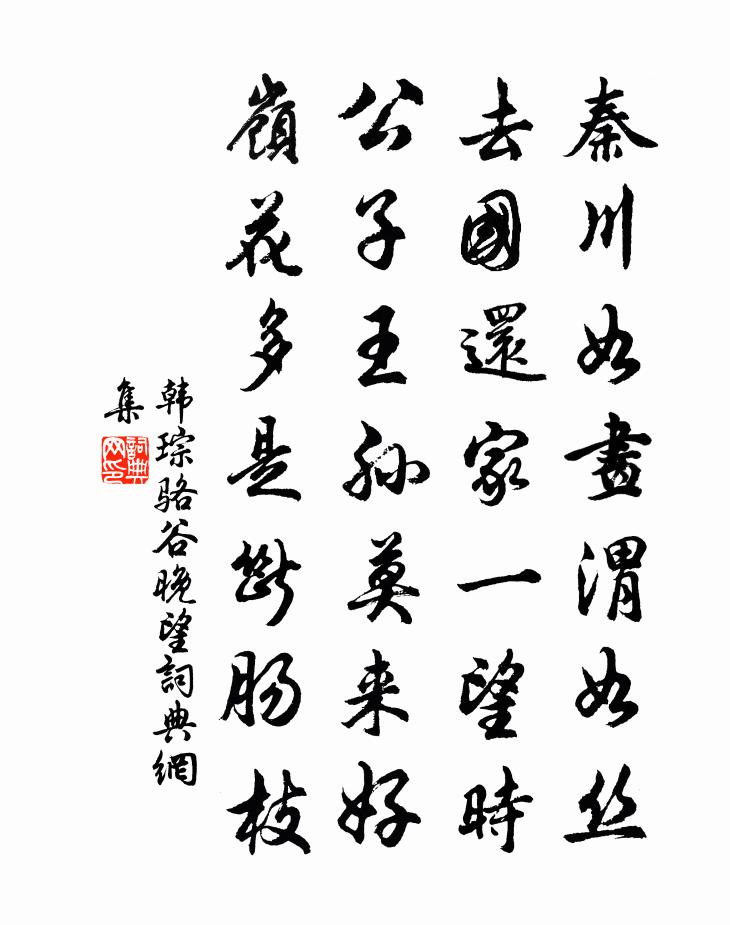 秦川如畫渭如丝
去國還家一望時
公子王孫莫来好
嶺花多是斷肠枝
韩琮骆谷晚望詞典網
集
詞典
网印